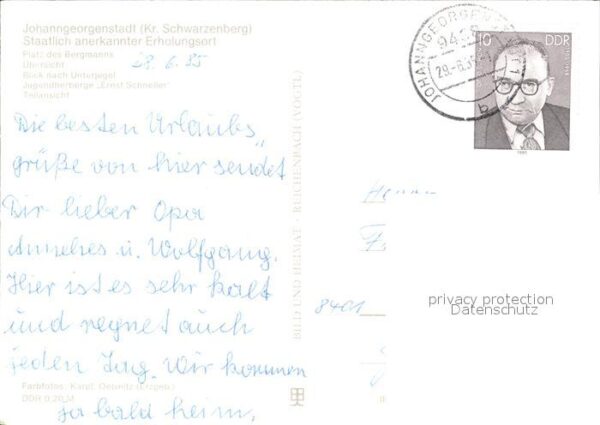 Johanngeorgenstadt (Kr. Schwarzenberg)
Staatlich anerkannter Erholungsort
Platz des Bergmanns
Übersicht
Blick nach Unterjugel
Jugendherberge „Ernst Schneller"
Teilansicht
29.6.85
Die besten Urlaubs„
grüße von hier sendet
Dir lieber Opa
Annelies u. Wolfgang.
Hier ist es sehr kalt
und regnet auch
jeden Tag. Wir kommen
ja bald heim.
Farbfotos: Karpf, Oelsnitz (Erzgeb.)
DDR 0,20 M
BILD UND HEIMAT REICHENBACH (VOGTL)
JOHANNGEORGENSTADT 1
9438
29.-6.85
b
10
DDR
Herrn
8401
privacy protection
Datenschutz